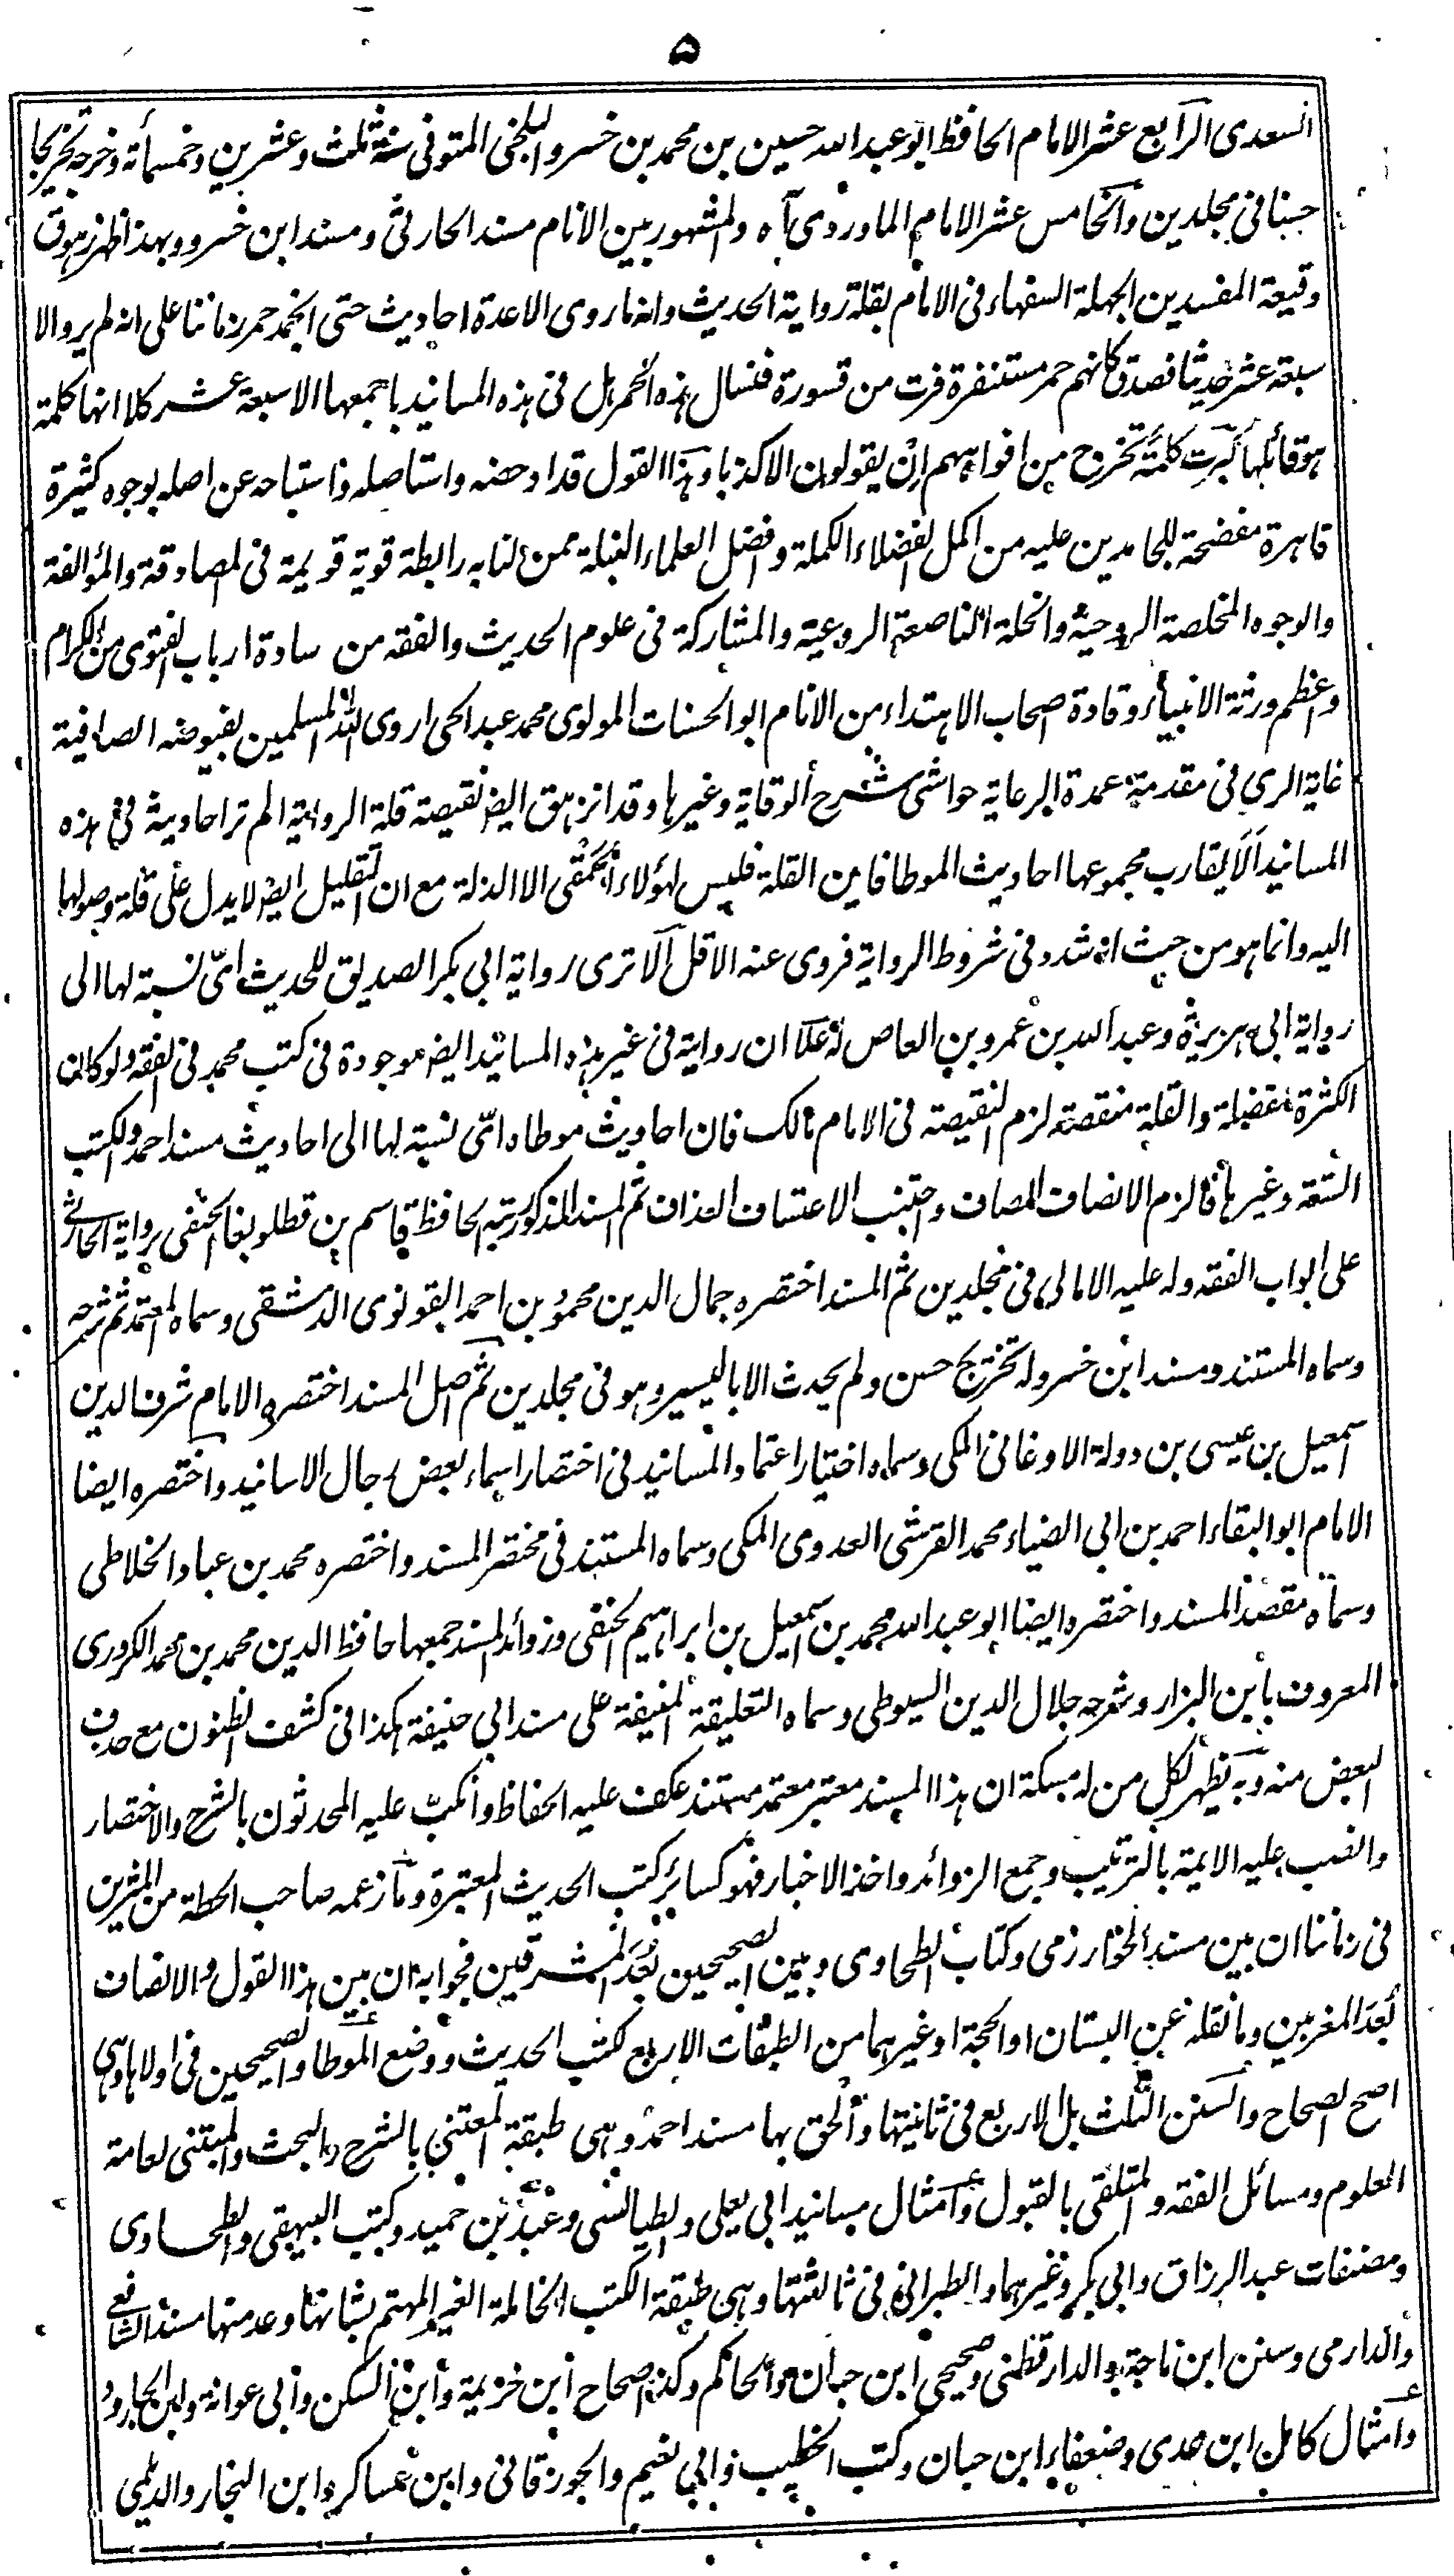 ۵
السعدی الرابع عشر الامام الحافظ ابو عبد الله حسین بن محمد بن خسرو البلخی المتوفی سنة ثلث وعشرین وخمسمأة وخرجه تخریجا
حسنا فی مجلدین والخامس عشر الامام الماوردی آه والمشهور بین الانام مسند الحارثی ومسند ابن خسرو وبهذا ظهر زهوق
وقیعة المفسدین الجهلة السفهاء فی الامام بقلة روایة الحدیث وانه ما روی الا عدة احادیث حتی انجمد حمر زماننا علی انه لم یرو الا
سبعة عشر حدیثا فصدق کانهم حمر مستنفرة فرت من قسورة فنسال هذه الحمر هل فی هذه المسانید باجمعها الا سبعة عشر کلا انها کلمة
هو قائلها کبرت کلمة تخرج من افواههم ان یقولون الا کذبا وهذا القول قد ادحضه واستاصله واستباحه عن اصله بوجوه کثیرة
قاهرة مفضحة للجامدین علیه من اکمل الفضلاء الکملة وافضل العلماء النبلة ممن لنا به رابطة قویة قویمة فی المصادقة والموالفة
والوجوه المخلصة الروحیة والخلة الناصعة الروعیة والمشارکة فی علوم الحدیث والفقه من سادة ارباب الفتوی من الکرام
وعظم ورثة الانبیاء وقادة اصحاب الاهتداء من الانام ابو الحسنات المولوی محمد عبد الحی اروی الله المسلمین بفیوضه الصافیة
غایة الری فی مقدمة عمدة الرعایة حواشی شرح الوقایة وغیرها وقد انزهق ایضا نقیصة قلة الروایة الم تر احادیثه فی هذه
المسانید الا یقارب مجموعها احادیث الموطا فاین القلة فلیس لهؤلاء الحمقی الا الذلة مع ان التقلیل ایضا لا یدل علی قلة وصولها
الیه وانما هو من حیث انه شدد فی شروط الروایة فروی عنه الاقل الا تری روایة ابی بکر الصدیق للحدیث ای نسبة لها الی
روایة ابی هریرة وعبد الله بن عمرو بن العاص له علا ان روایة فی غیر هذه المسانید ایضا موجودة فی کتب محمد فی الفقه ولو کان
الکثرة فضیلة والقلة منقصة لزم النقیصة فی الامام مالک فان احادیث موطاه ای نسبة لها الی احادیث مسند احمد والکتب
الستة وغیرها فالزم الانصاف المصاف واجتنب الاعتساف العذاف ثم المسند المذکور رتبه الحافظ قاسم بن قطلوبغا الحنفی بروایة الحارثی
علی ابواب الفقه وله علیه الامالی فی مجلدین ثم المسند اختصره جمال الدین محمود بن احمد القونوی الدمشقی وسماه المعتمد ثم شرحه
وسماه المستند ومسند ابن خسرو له تخریج حسن ولم یحدث الا بالیسیر وهو فی مجلدین ثم اصل المسند اختصره الامام شرف الدین
اسمعیل بن عیسی بن دولة الاوغانی المکی وسماه اختیار اعتماد المسانید فی اختصار اسماء بعض رجال الاسانید واختصره ایضا
الامام ابو البقاء احمد بن ابی الضیاء محمد القرشی العدوی المکی وسماه المستند فی مختصر المسند واختصره محمد بن عباد الخلاطی
وسماه مقصد المسند واختصره ایضا ابو عبد الله محمد بن اسمعیل بن ابراهیم الحنفی وزوائد المسند جمعها حافظ الدین محمد بن محمد الکروری
المعروف بابن البزار وشرحه جلال الدین السیوطی وسماه التعلیقة المنیفة علی مسند ابی حنیفة هکذا فی کشف الظنون مع حذف
البعض منه وبه یظهر لکل من له مسکة ان هذا المسند معتبر معتمد مستند عکف علیه الحفاظ وانکب علیه المحدثون بالشرح والاختصار
وانصب علیه الایمة بالترتیب وجمع الزوائد واخذ الاخبار فهو کسائر کتب الحدیث المعتبرة وما زعمه صاحب الحطة من المثرین
فی زماننا ان بین مسند الخوارزمی وکتاب الطحاوی وبین الصحیحین بعد المشرقین فجوابه ان بین هذا القول والانصاف
بعد المغربین وما نقله عن البستان او الحجة او غیرهما من الطبقات الاربع لکتب الحدیث ووضع الموطا والصحیحین فی اولاها وهی
اصح الصحاح والسنن الثلث بل الاربع فی ثانیتها والحق بها مسند احمد وهی طبقة المعتنی بالشرح والبحث والمبتنی لعامة
العلوم ومسائل الفقه والمتلقی بالقبول وامثال مسانید ابی یعلی والطیالسی وعبد بن حمید وکتب البیهقی والطحاوی
ومصنفات عبد الرزاق وابی بکر وغیرهما والطبرانی فی ثالثتها وهی طبقة الکتب الخاملة الغیر المهتم بشانها وعد منها مسند الشافعی
والدارمی وسنن ابن ماجة والدارقطنی وصحیحی ابن حبان والحاکم وکذا صحاح ابن خزیمة وابن السکن وابی عوانة وابن الجارود
وامثال کامل ابن عدی وضعفاء ابن حبان وکتب الخطیب وابی نعیم والجوزقانی وابن عساکر وابن النجار والدیلمی